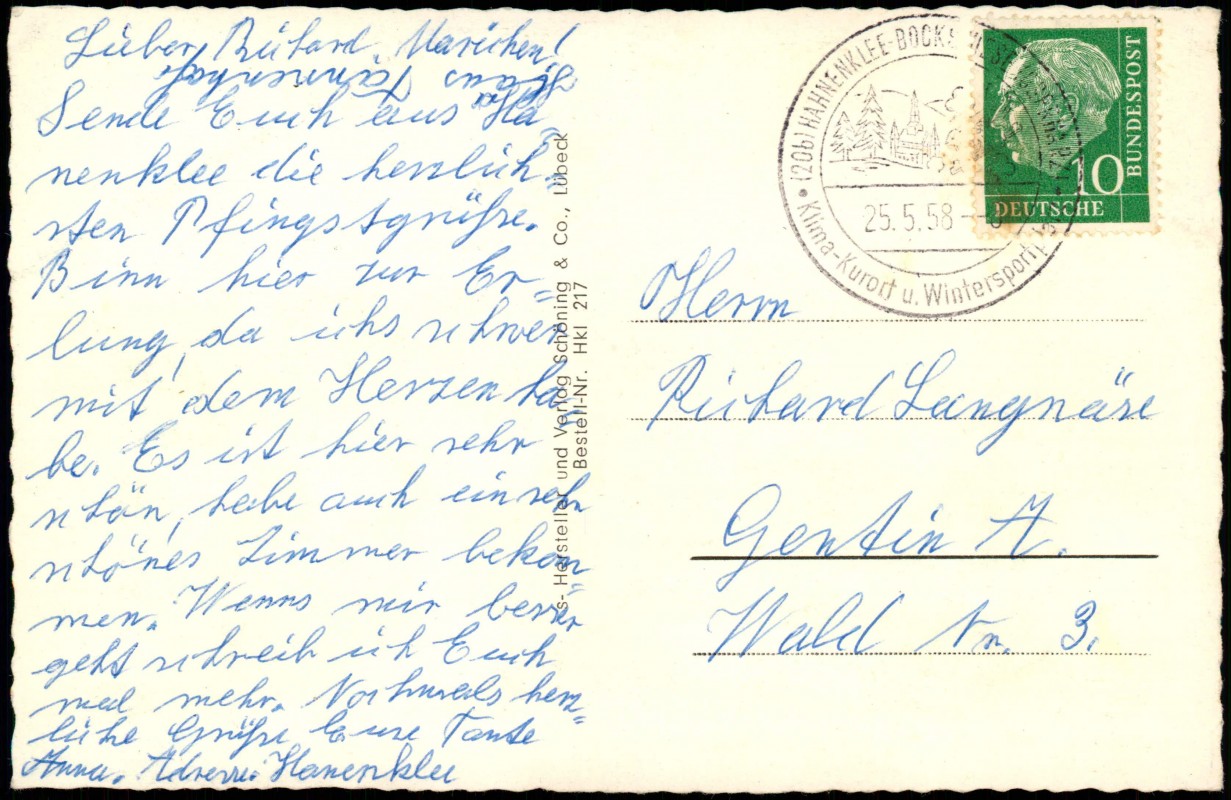 Lieber Richard, Marichen!
Sende Euch aus Ha-
nenklee die herzlich-
sten Pfingstgrüße.
Binn hier zur Er-
lung, da ichs schwer
mit dem Herzen ha-
be. Es ist hier sehr
schön, habe auch ein sehr
schönes Zimmer bekom-
men. Wenns mir besser
geht schreib ich Euch
mal mehr. Nochmals herz-
liche Grüße Eure Tante
Anna. Adresse Hanenklee
Haus Tannenhof
s- Hersteller und Verlag Schöning & Co., Lübeck
Bestell-Nr. Hkl 217
(20b) HAHNENKLEE-BOCKS
25.5.58
Klima-Kurort u. Wintersport
10
DEUTSCHE
BUNDESPOST
Herrn
Richard Langnäse
Gentin A.
Wald Nr. 3.